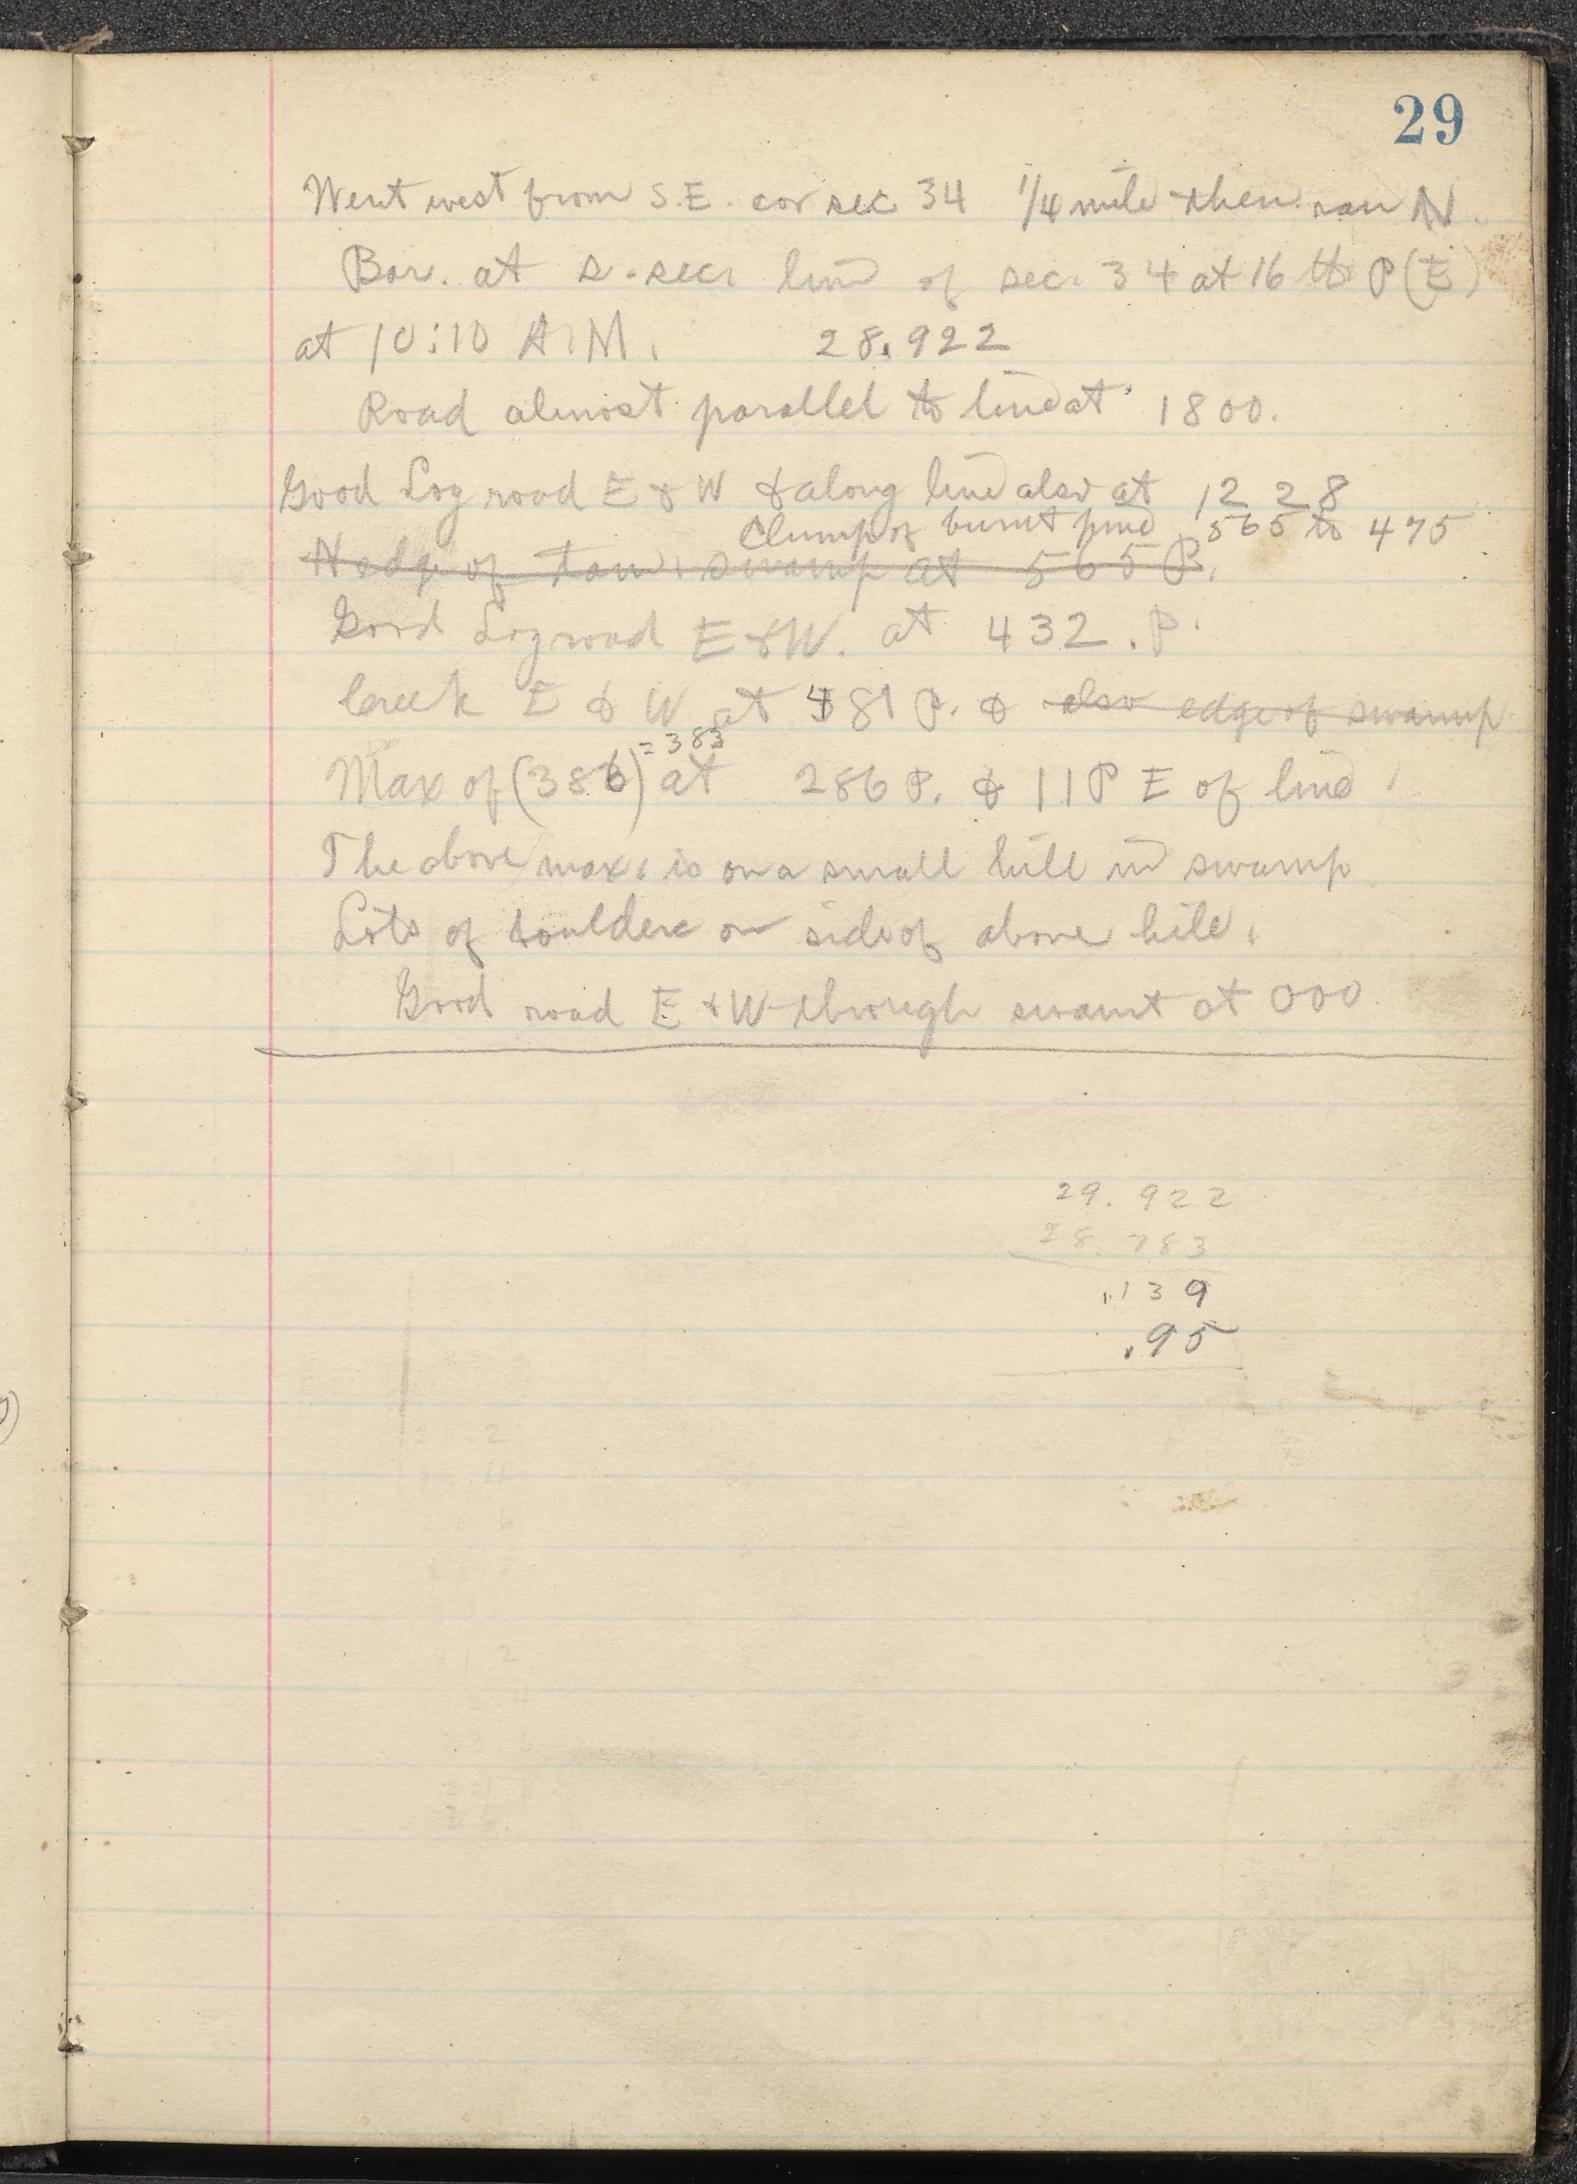 29
Went west from S.E. cor sec 34 1/4 mile then ran N.
Bar. at s. sec. line of sec. 34 at 16 th P (E)
at 10:10 A.M. 28.922
Road almost parallel to line at 1800.
Good Log road E & W & along line also at 1228
Clump of burnt pine 565 to 475
N edge of Tam. swamp at 565 P.
Good Log road E & W. at 432. P.
Creek E & W at 481 P. & also edge of swamp
= 383
Max of (386) at 286 P. & 11 P E of line.
The above max. is on a small hill in swamp
Lots of boulders on side of above hill.
Good road E & W through swamt at 000
29.922
28.783
1.139
.95